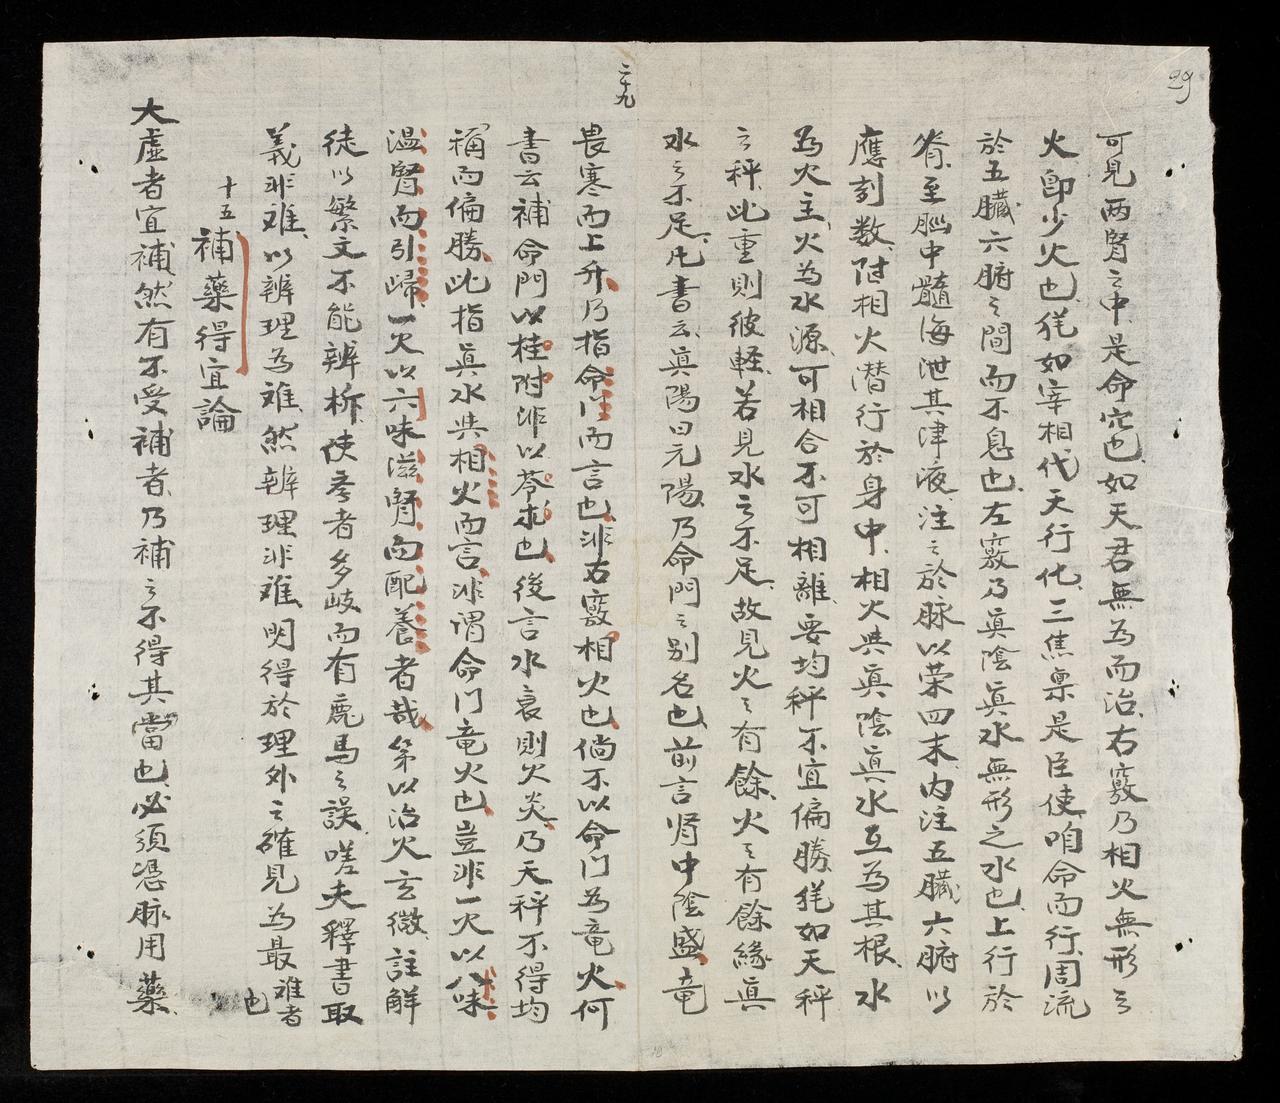 29
可見两腎之中是命穴也如天君無為而治右竅乃相火無形之
火即少火也犹如宰相代天行化三焦稟是臣使咱命而行周流
於五臟六腑之間而不息也左竅乃眞陰眞水無形之水也上行於
脊至腦中髓海泄其津液注之於脉以荣四末内注五臟六腑以
應刻数附相火潛行於身中相火與眞陰眞水互為其根水
為火主火為水源可相合不可相離要均秤不宜偏勝犹如天秤
之秤此重則彼軽若見水之不足故見火之有餘火之有餘緣眞
水之不足凡書云眞陽曰元陽乃命門之别名也前言肾中陰盛竜
二十九
畏寒而上升乃指命门而言也非右竅相火也倘不以命门為竜火何
書云補命門以桂附非以苓求也後言水衰則火炎乃天秤不得均
稱而偏勝此指眞水與相火而言非謂命门竜火也豈非一火以八味
溫腎而引歸一火以六味滋腎而配養者哉第以治火玄微註解
徒以繁文不能辨析使孝者多岐而有鹿馬之誤嗟夫釋書取
義非难以辨理為难然辨理非难明得於理外之確見為最难者也
十五 補藥得宜論
大虛者宜補然有不受補者乃補之不得其當也必須憑脉用藥